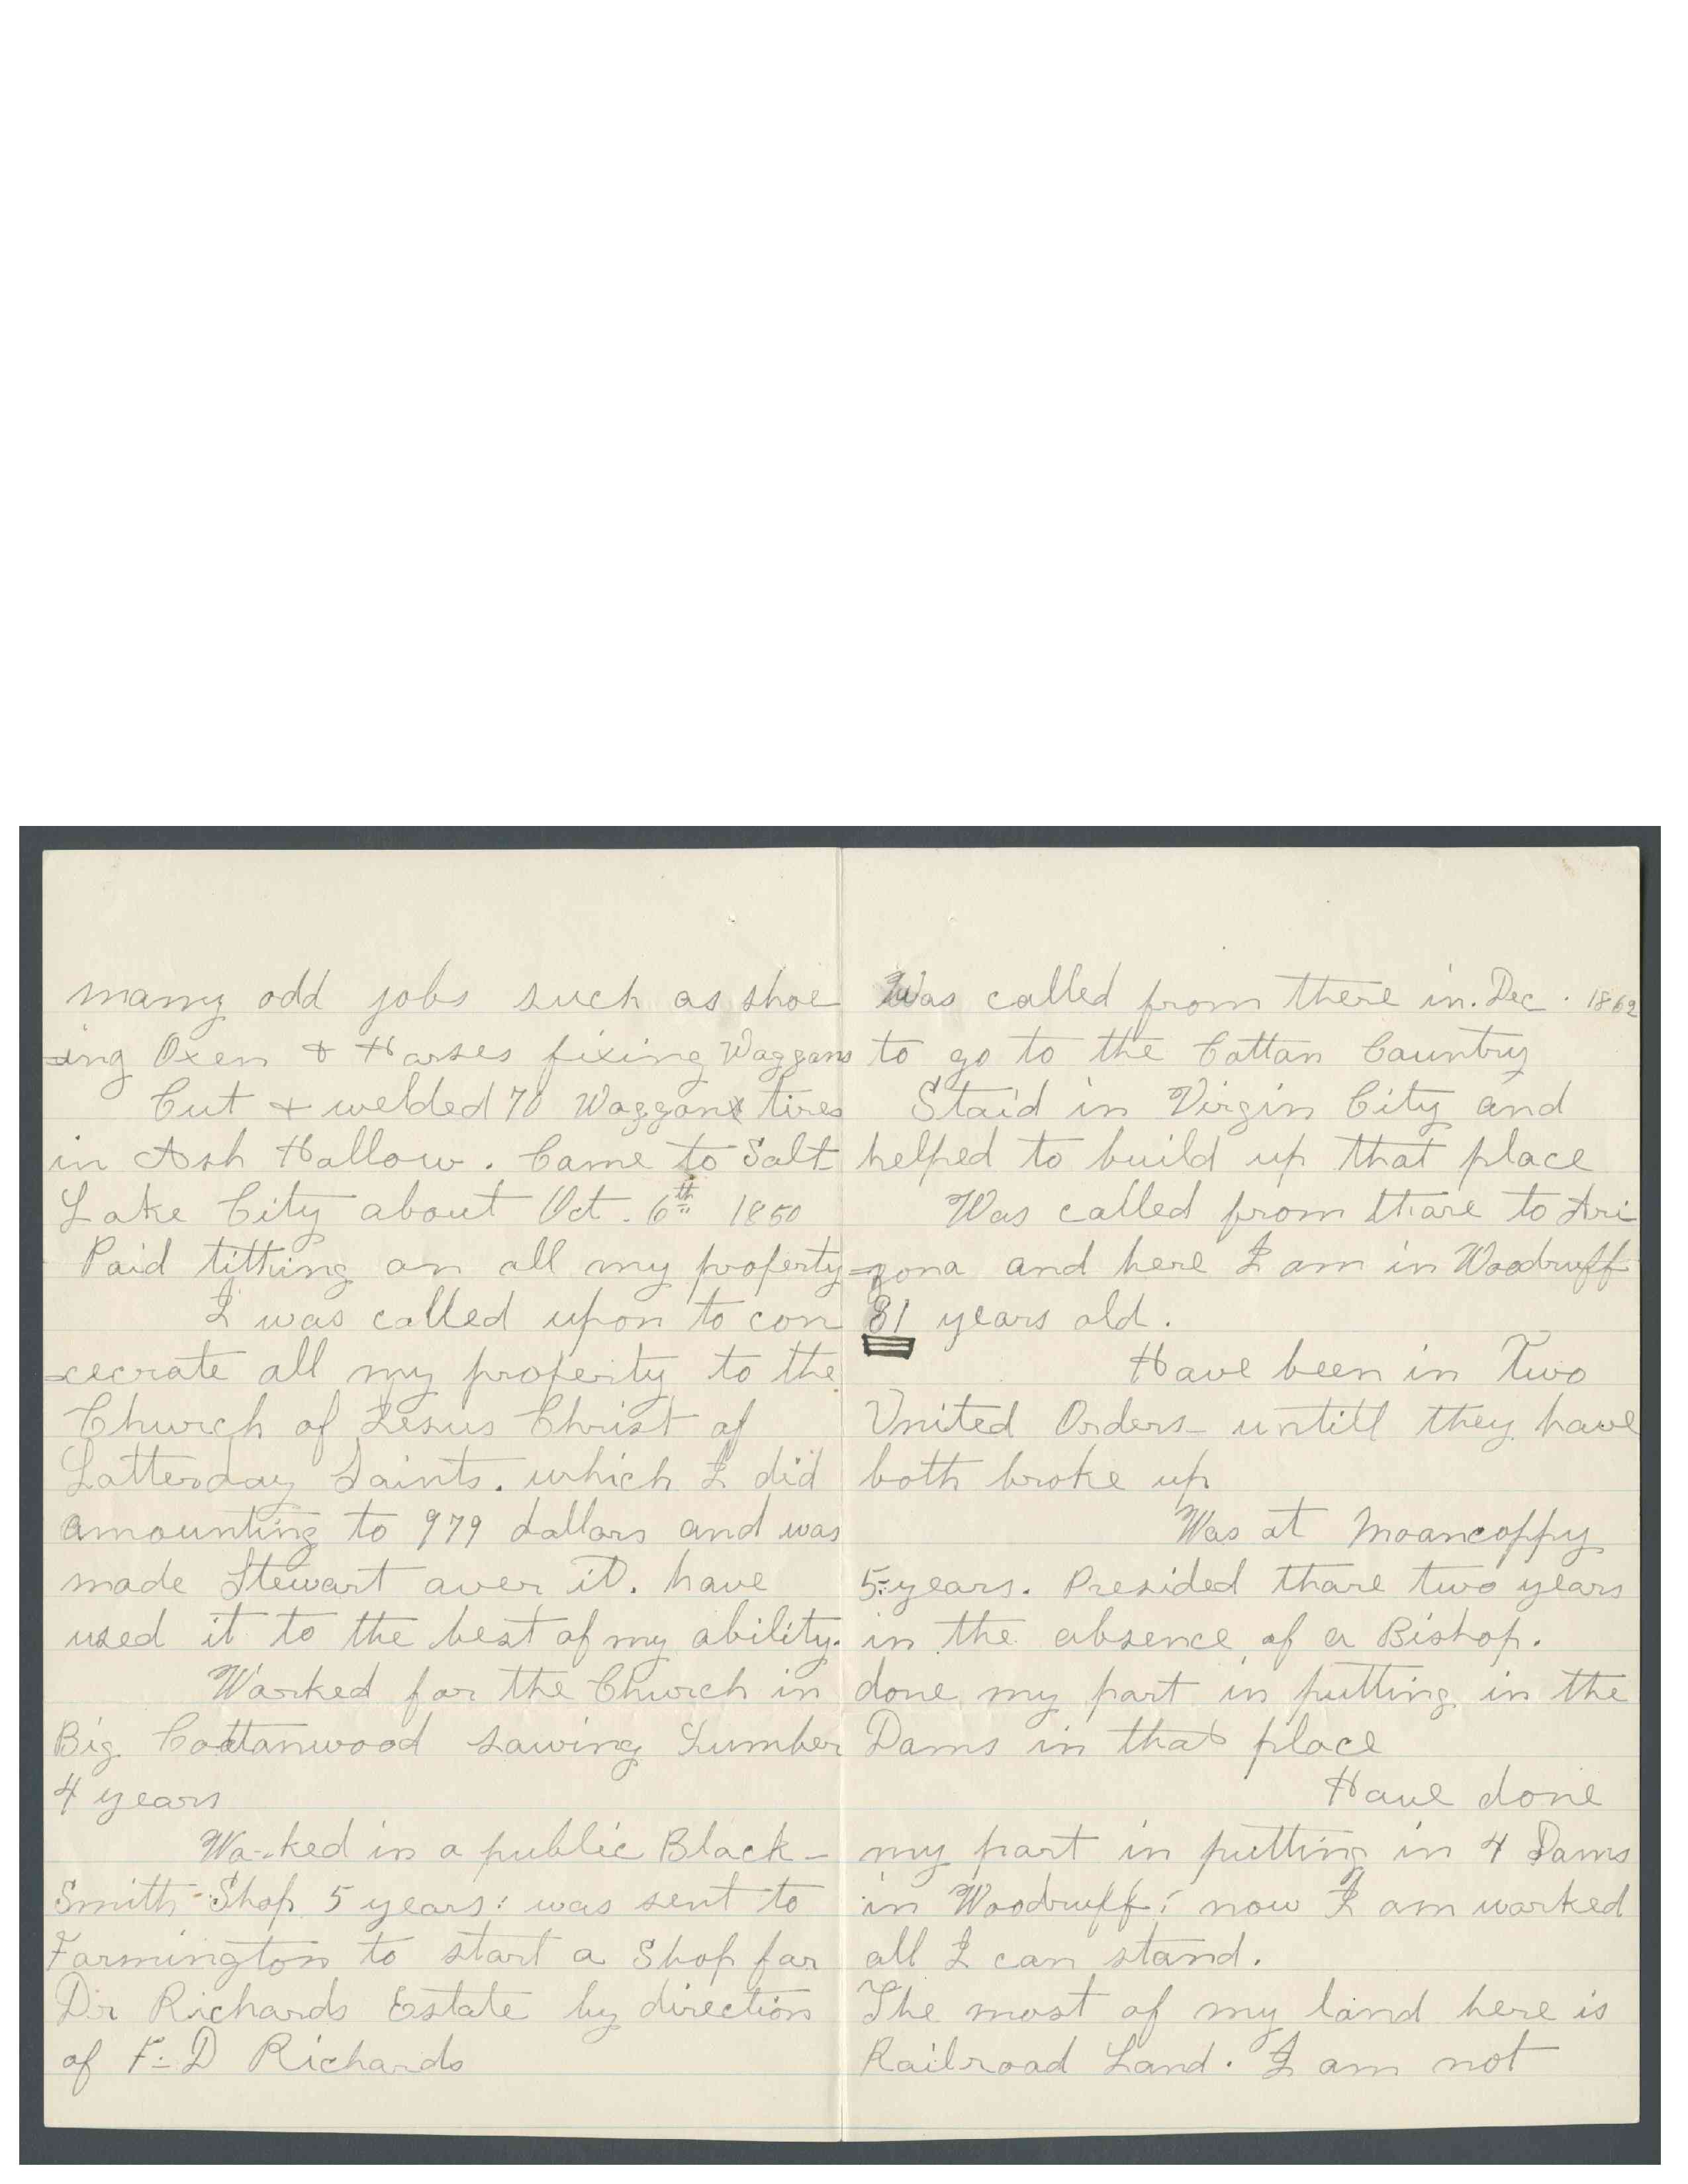 many odd jobs such as shoe
=ing Oxen & Horses fixing Waggons
Cut & welded 70 Waggon tires
in Ash Hallow. Came to Salt
Lake City about Oct. 6th 1850
Paid tithing on all my property
I was called upon to con
=cecrate all my property to the
Church of Jesus Christ of
Latterday Saints. which I did
amounting to 979 dollars and was
made Stewart over it. have
used it to the best of my ability.
Worked for the Church in
Big Cottanwood sawing Lumber
4 years
Worked in a public Black-
Smith-Shop 5 years: was sent to
Farmington to start a Shop for
Dr Richards Estate by direction
of F-D Richards
Was called from there in. Dec. 1862
to go to the Cottan Country
Staid in Virgin City and
helped to build up that place
Was called from thare to Ari
=zona and here I am in Woodruff
81 years old.
Have been in Two
United Orders- untill they have
both broke up
Was at Moancoppy
5-years. Presided thare two years
in the absence of a Bishop.
done my part in putting in the
Dams in that place
Have done
my part in putting in 4 Dams
in Woodruff; now I am worked
all I can stand.
The most of my land here is
Railroad Land. I am not